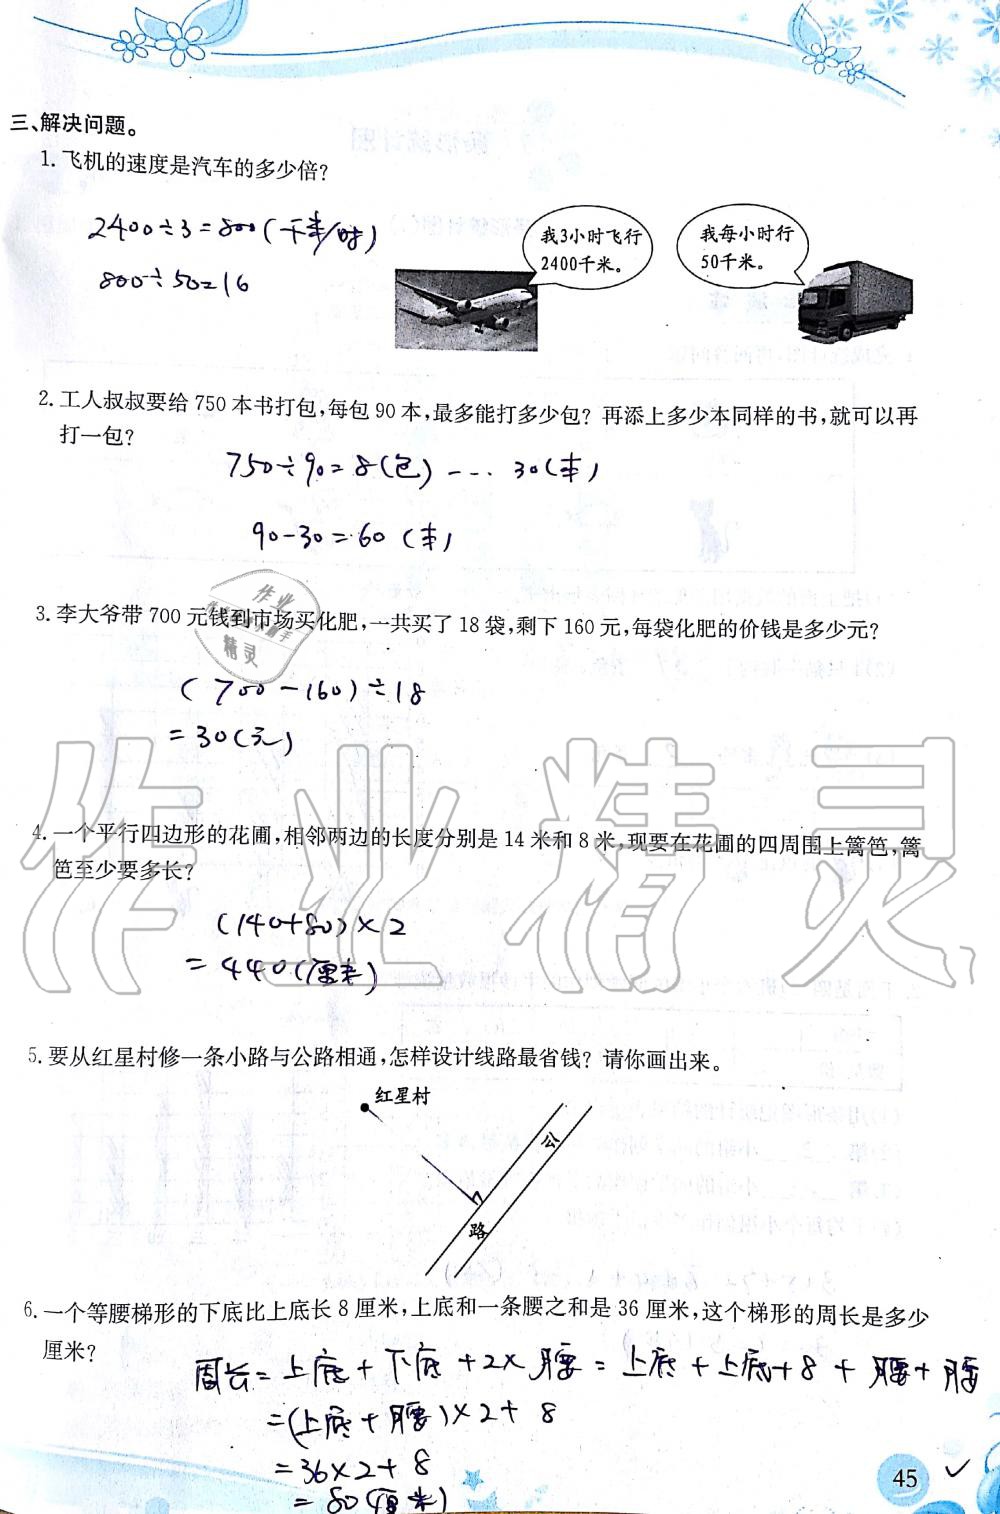 三、解决问题。
1. 飞机的速度是汽车的多少倍?
2400÷3=800(千米/时)
800÷50=16
我3小时飞行
2400千米。
我每小时行
50千米。
2. 工人叔叔要给 750 本书打包,每包 90 本,最多能打多少包? 再添上多少本同样的书,就可以再
打一包?
750÷90=8(包)……30(本)
90-30=60(本)
3. 李大爷带 700 元钱到市场买化肥,一共买了 18 袋,剩下 160 元,每袋化肥的价钱是多少元?
作业
精灵
(700-160)÷18
=30(元)
作业精灵
4. 一个平行四边形的花圃,相邻两边的长度分别是 14 米和 8 米,现要在花圃的四周围上篱笆,篱
笆至少要多长?
(140+80)×2
=440(厘米)
5. 要从红星村修一条小路与公路相通,怎样设计线路最省钱? 请你画出来。
红星村
公
路
6. 一个等腰梯形的下底比上底长 8 厘米,上底和一条腰之和是 36 厘米,这个梯形的周长是多少
厘米?
周长=上底+下底+2×腰=上底+上底+8+腰+腰
=(上底+腰)×2+8
=36×2+8
=80(厘米)
45